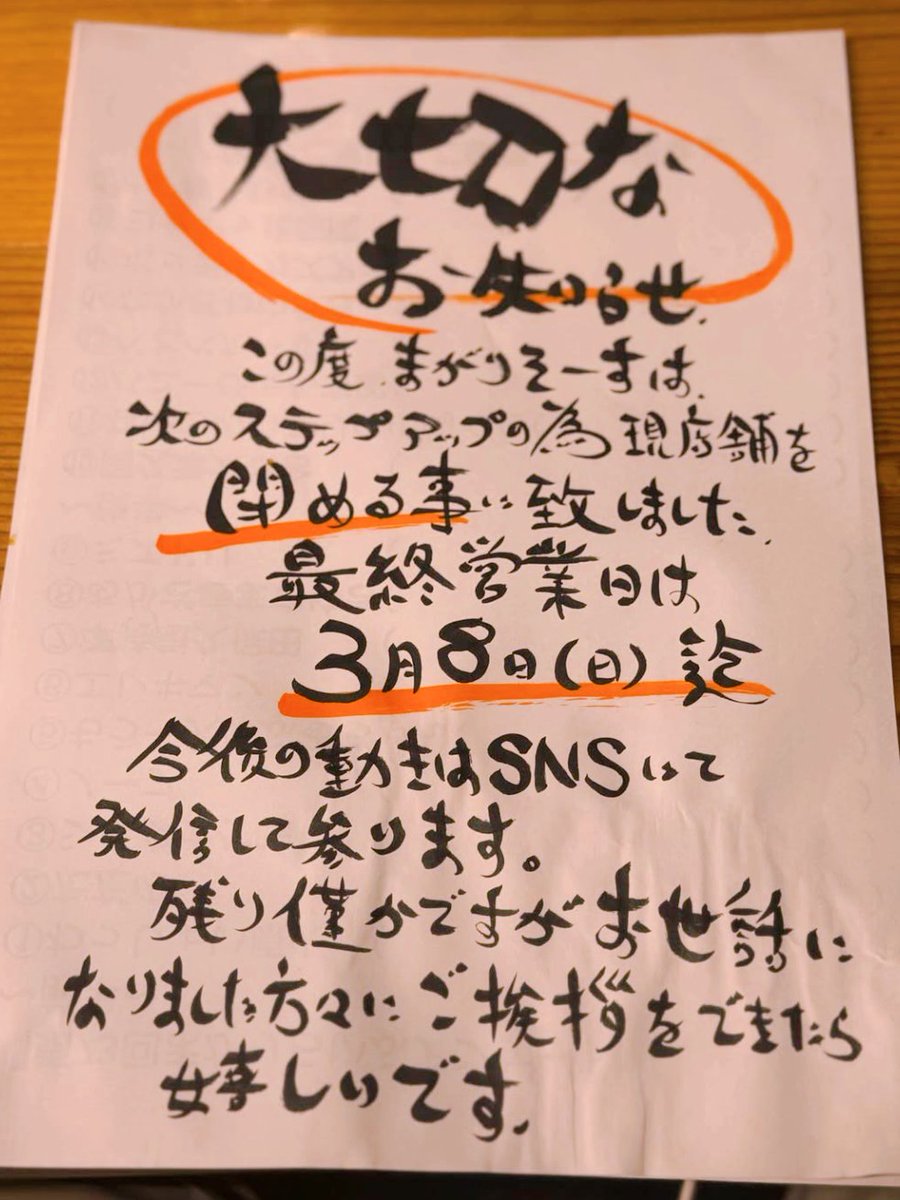 大切な
お知らせ.
この度.まがりそーすは.
次のステップアップの為現店舗を
閉める事に致しました.
最終営業日は
3月8日(日)迄
今後の動きはSNSにて
発信して参ります。
残り僅かですがお世話に
なりました方々にご挨拶をできたら
嬉しいです.